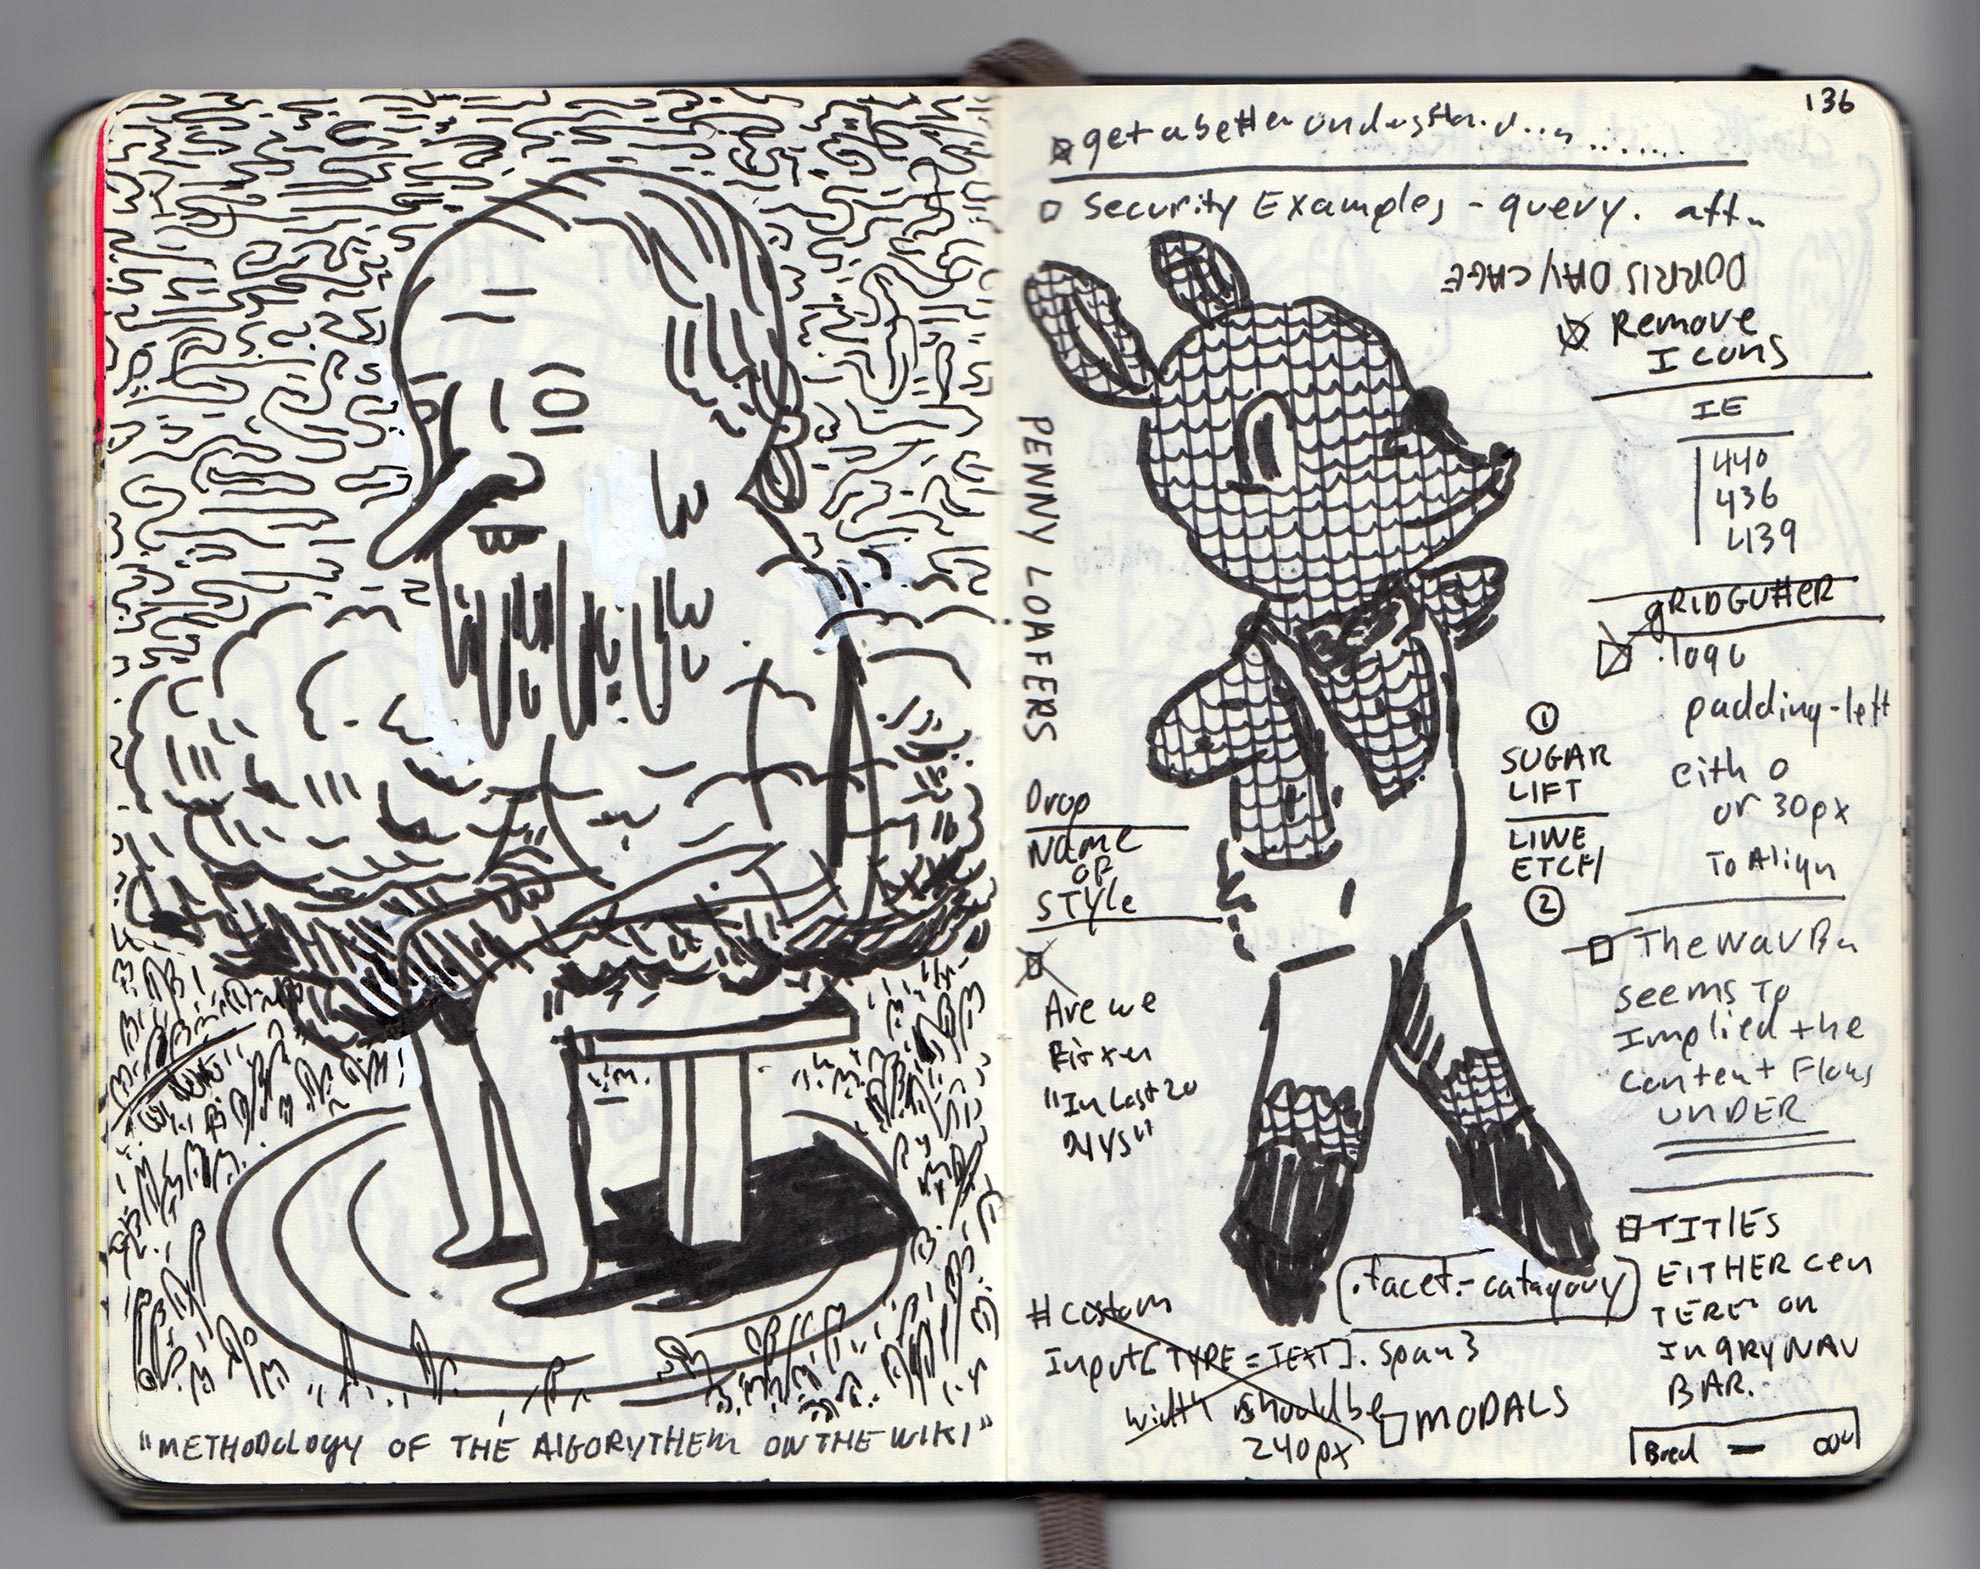 "METHODOLOGY OF THE AlGORYTHEM ON THE WIKI"
136
get a better
Security Examples - query. attn
DORRIS DAY/CAGE
Remove
Icons
IE
440
436
439
gRIDGUttER
.logo
padding-left
eith 0
or 30px
To Align
PENNY LOAFERS
① 
SUGAR
LIFT
LINE
ETCH
②
Drop
NAME
OF
STYle
Are we
"In Last 20
The NAV
seems To
Implied the
Content Flows
UNDER
TITlES
EITHER cen
TERE' on
In gRy NAV
BAR.
.facet-catagory
#custom
Input[TYPE=TEXT].span3
width should be
240px
MODALS